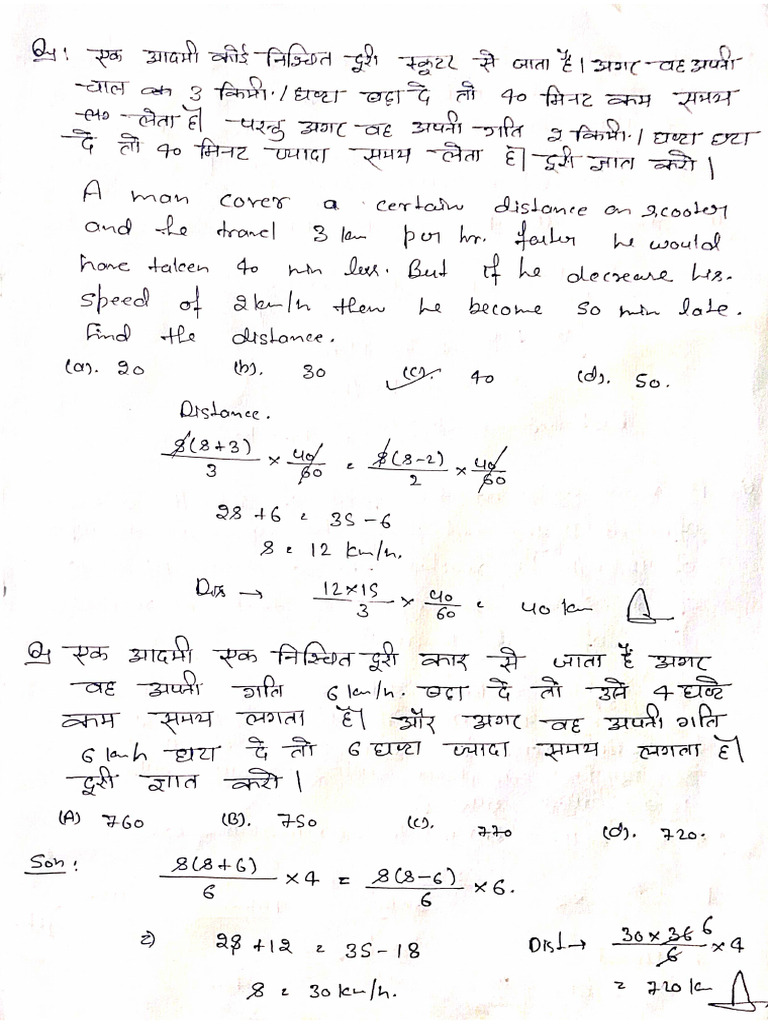 Q: एक आदमी कोई निश्चित दूरी स्कूटर से जाता है। अगर वह अपनी
चाल को 3 किमी./घण्टा बढ़ा दे तो 40 मिनट कम समय
लेता है। परन्तु अगर वह अपनी गति 2 किमी./घण्टा घटा
दे तो 40 मिनट ज्यादा समय लेता है। दूरी ज्ञात करो।
A man cover a certain distance on scooter
and the travel 3 km per hr. faster he would
have taken 40 min less. But if he decrease his.
speed of 2km/h then he become so min late.
Find the distance.
(a). 20 (b). 30 (c). 40 (d). 50.
Distance.
S(S+3)/3 × 40/60 = S(S-2)/2 × 40/60
2S + 6 = 3S - 6
S = 12 km/h.
Dis → 12×15/3 × 40/60 = 40 km
Q एक आदमी एक निश्चित दूरी कार से जाता है अगर
वह अपनी गति 6 km/h. बढ़ा दे तो उसे 4 घण्टे
कम समय लगता है। और अगर वह अपनी गति
6 km/h घटा दे तो 6 घण्टा ज्यादा समय लगता है।
दूरी ज्ञात करो।
(A) 760 (B). 750 (c). 770 (d). 720.
Son: S(S+6)/6 × 4 = S(S-6)/6 × 6.
2S + 12 = 3S - 18 Dist → 30 × 36 6/6 × 4
S = 30 km/h. = 720 km